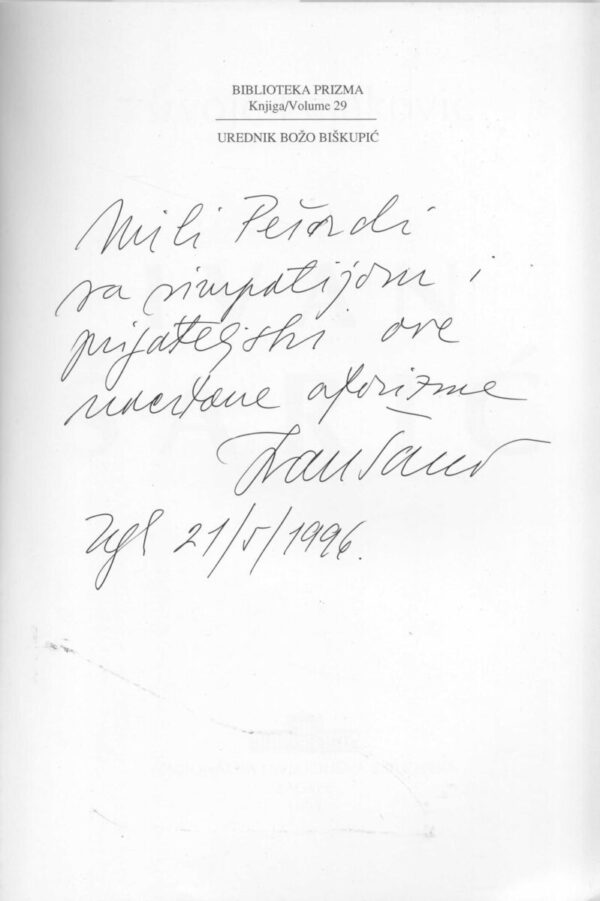 BIBLIOTEKA PRIZMA
Knjiga/Volume 29
UREDNIK BOŽO BIŠKUPIĆ
Mili Pešordi
sa simpatijom i
prijateljski ove
nacrtane aforizme
Ivan
Zgb 21/5/1996.